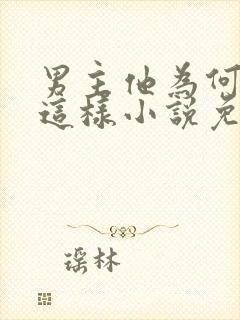 男主他為何
這樣小說免
瑶林